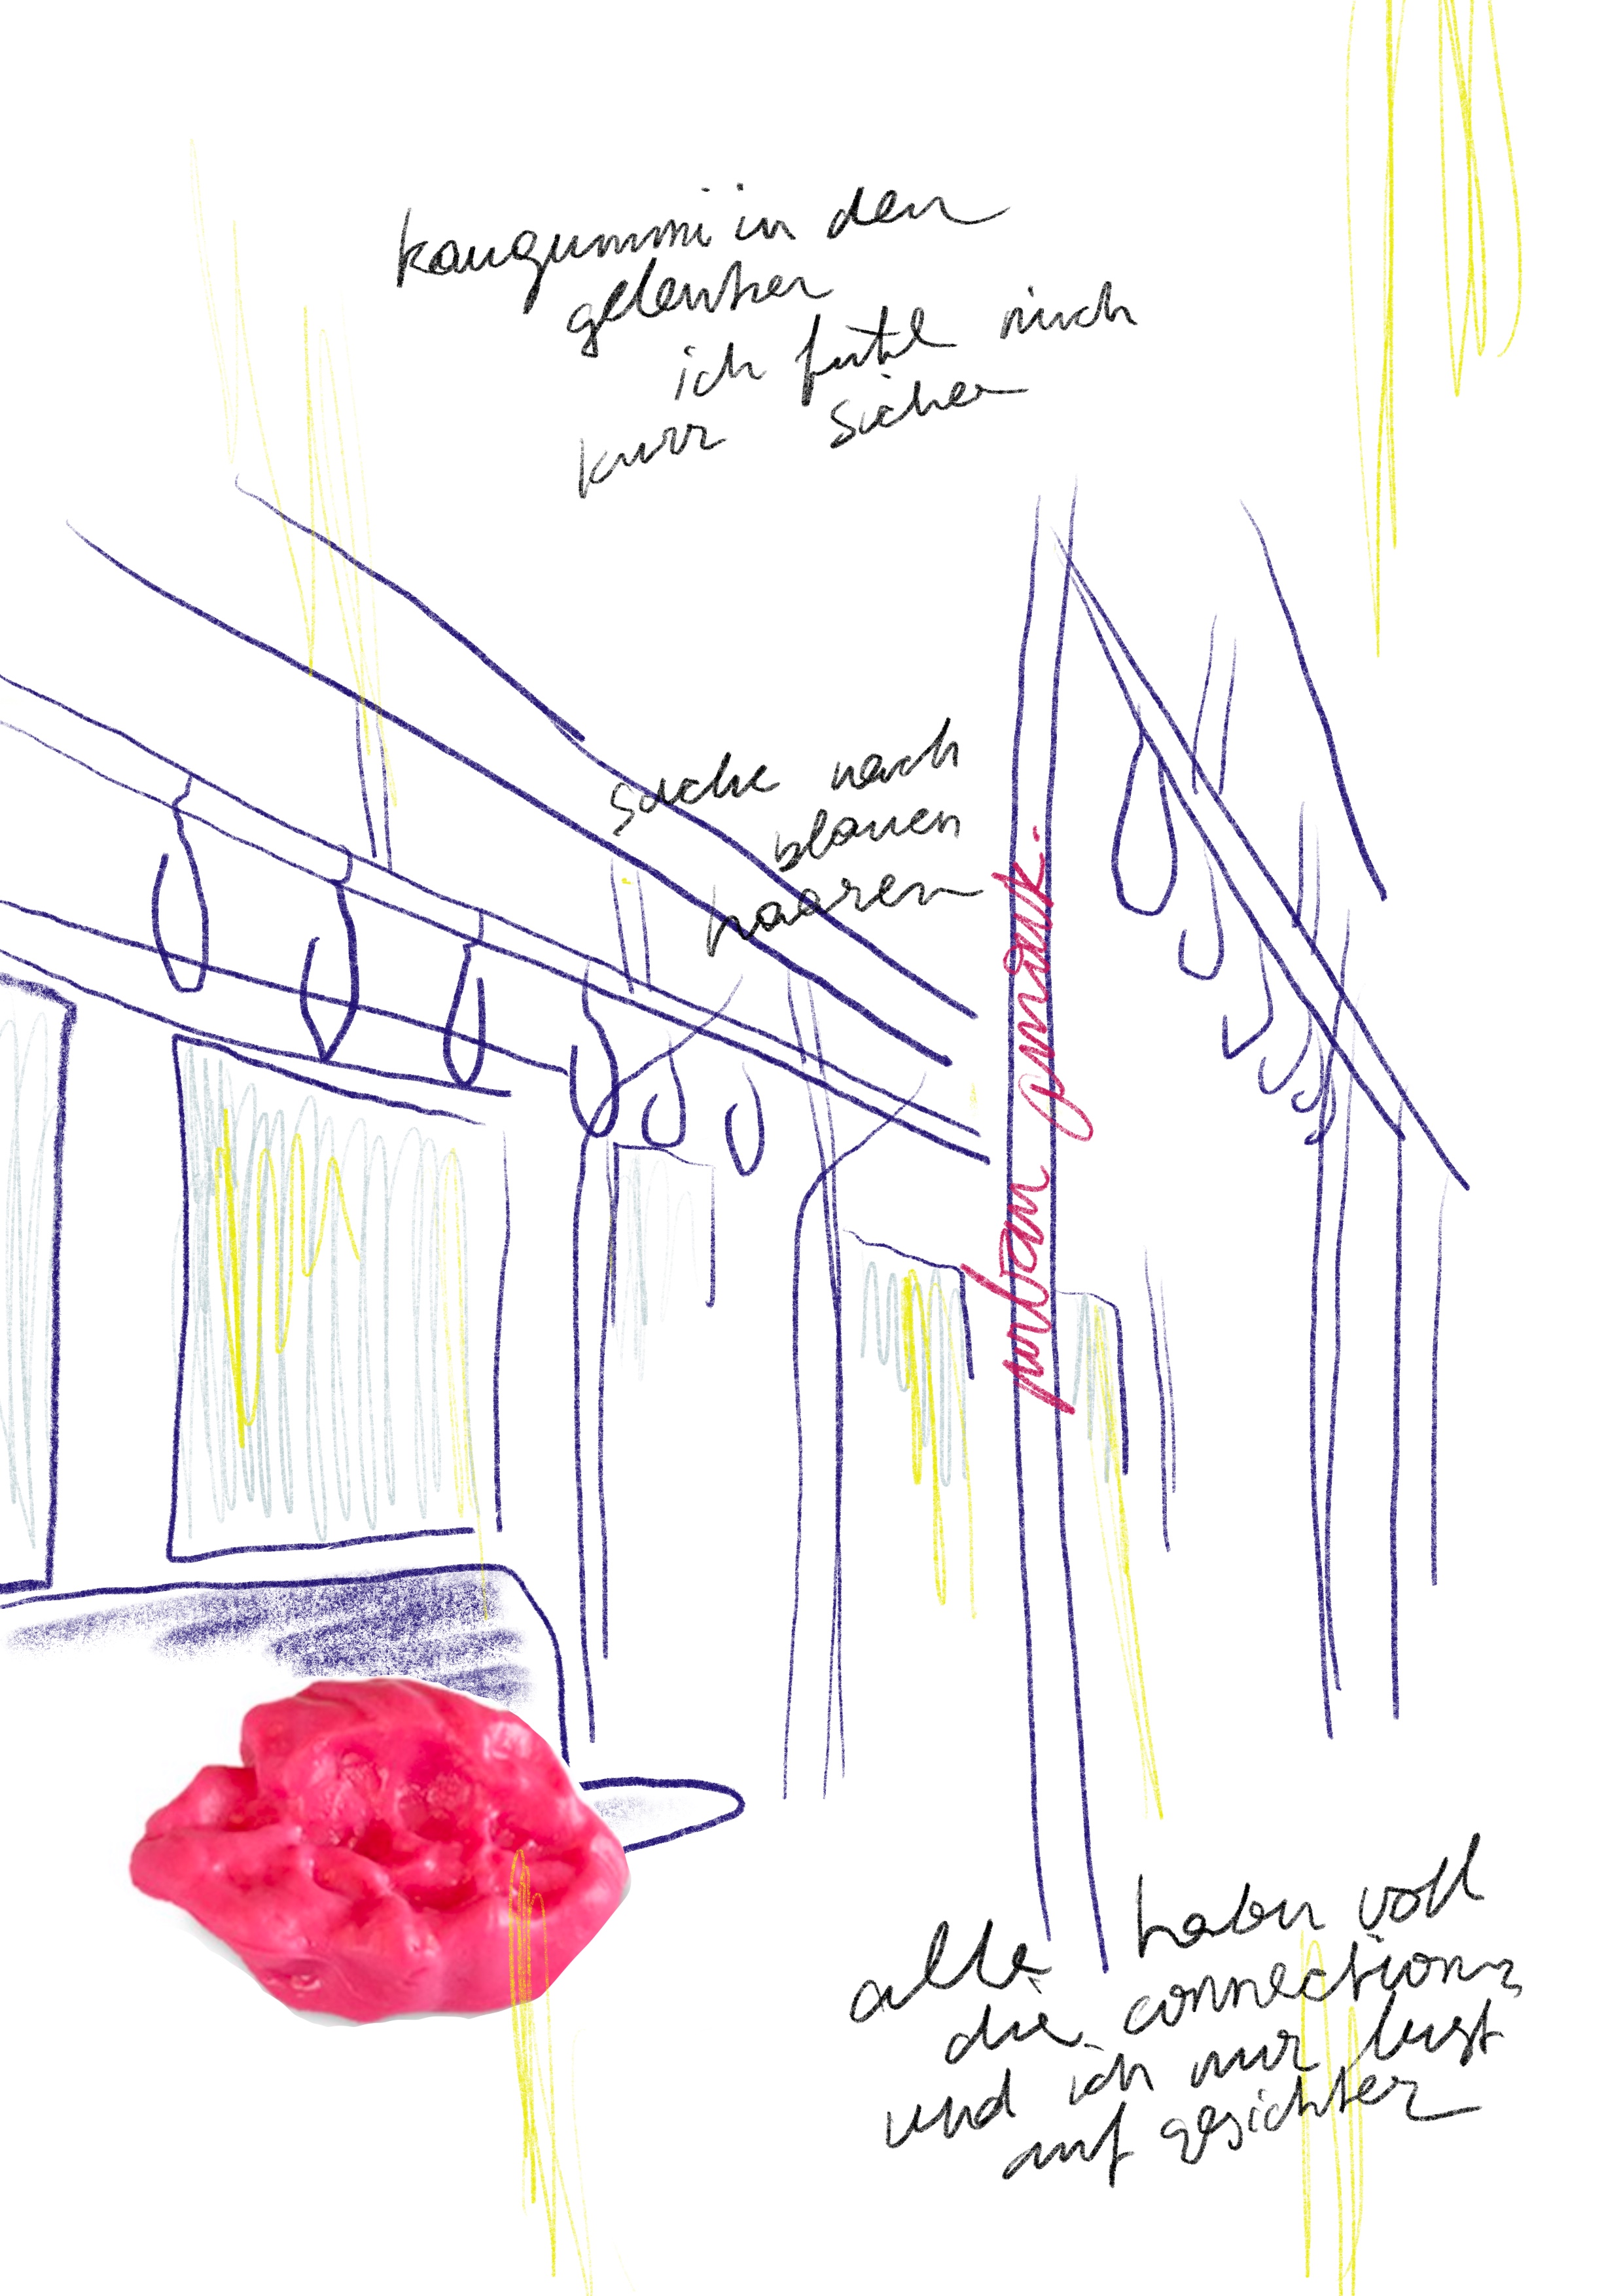 kaugummi in den
gelenken
ich fühl mich
kurz sicher
suche nach
blauen
haaren
urban
alle haben voll
die connection
und ich nur lust
auf gesichter